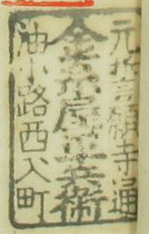 元誓願寺通
金屋兵衛
油小路西入町